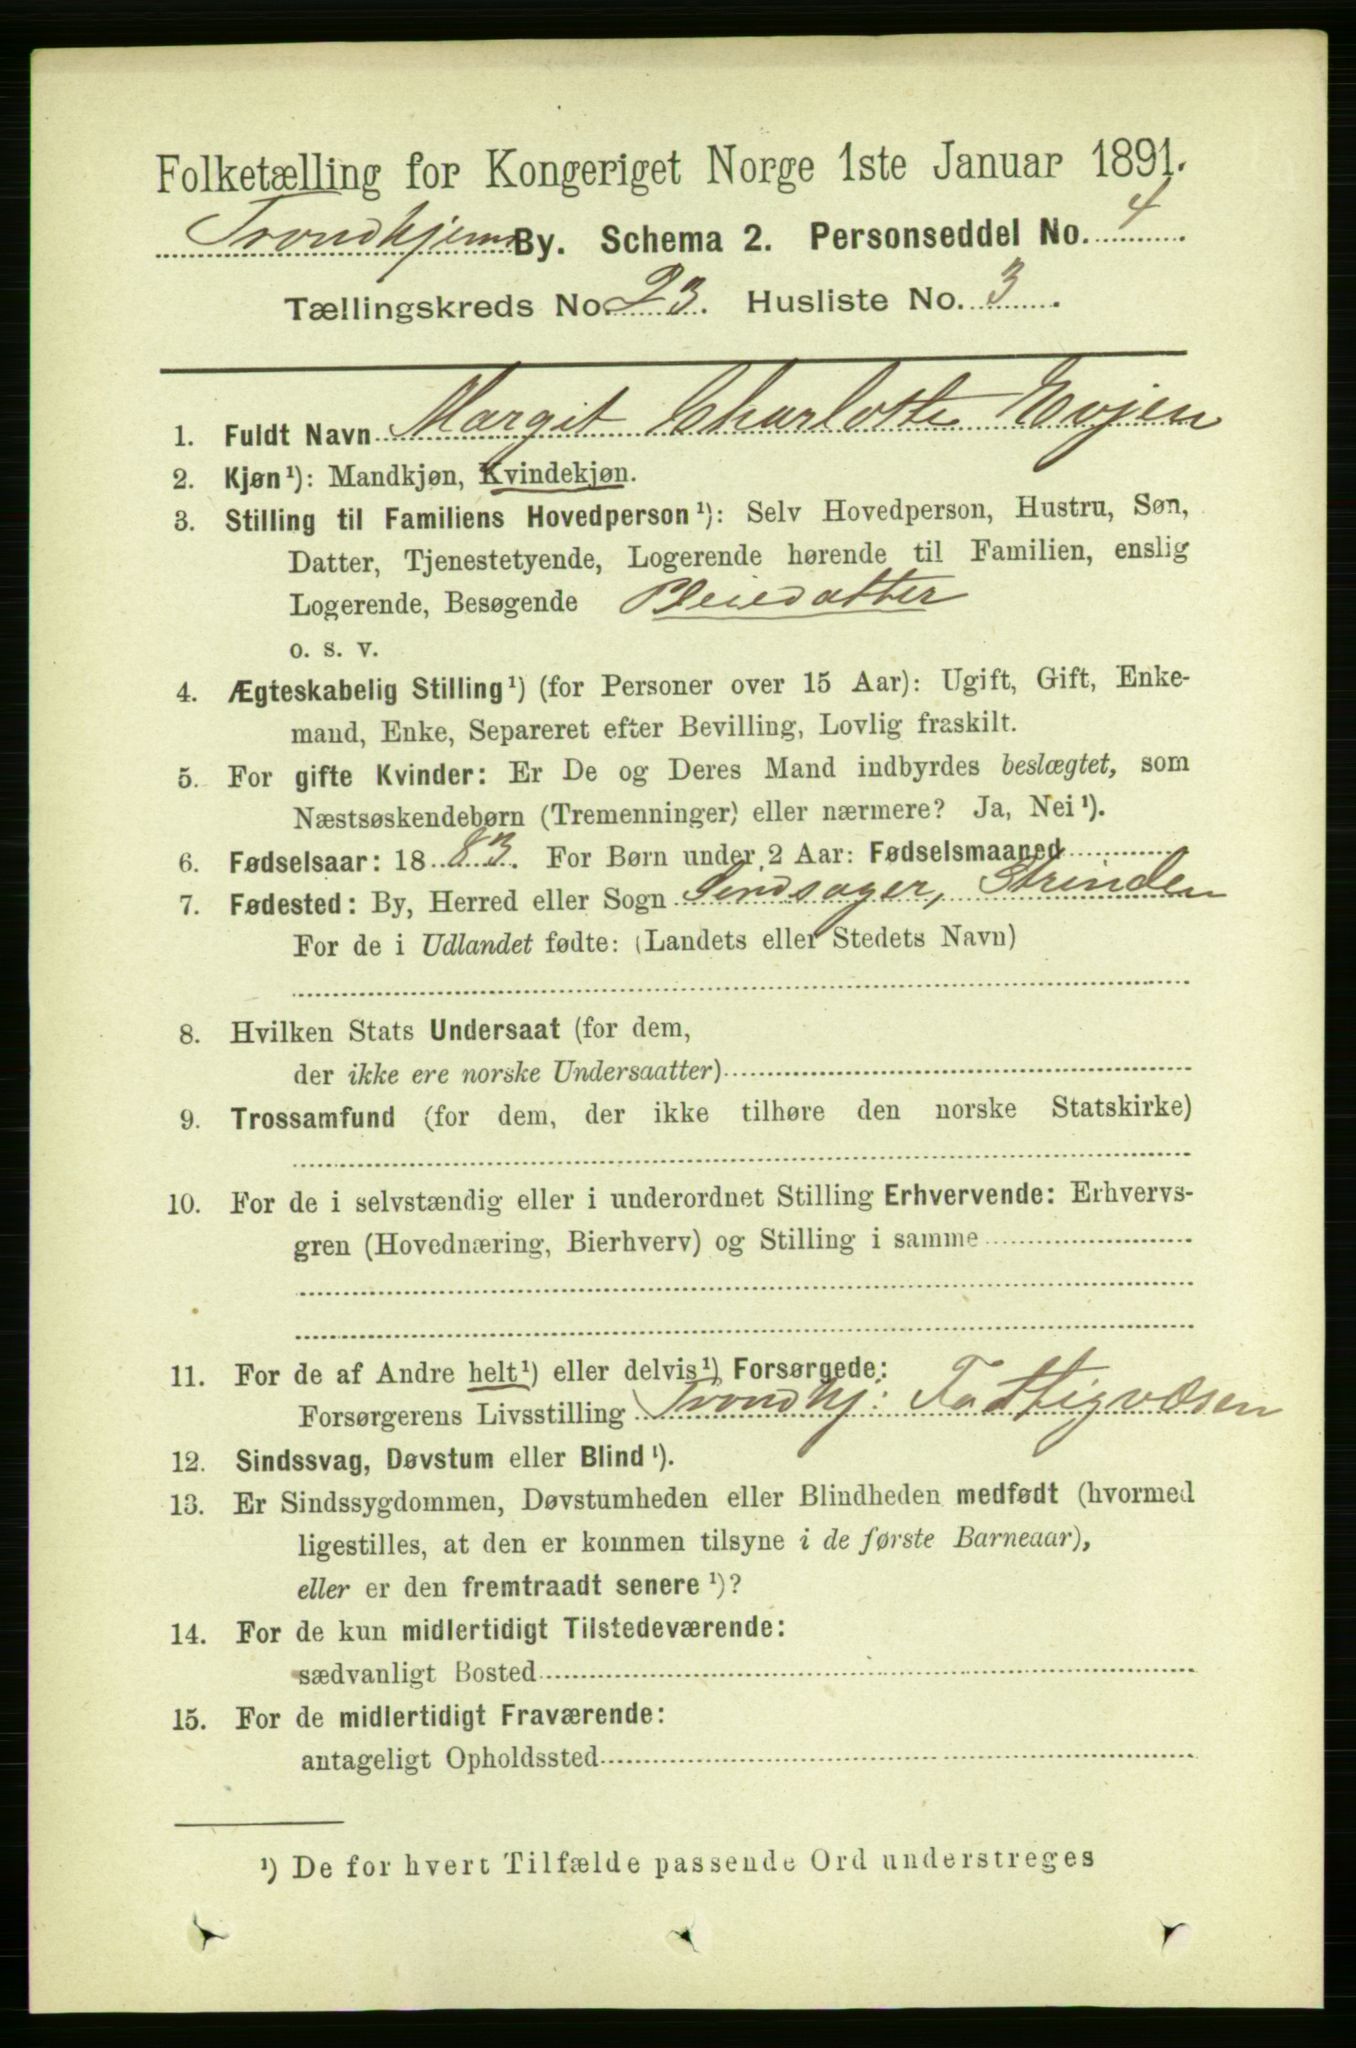 Folketælling for Kongeriget Norge 1ste Januar 1891.
Trondhjems By. Schema 2. Personseddel No. 4
Tællingskreds No. 23. Husliste No. 3.
1. Fuldt Navn Margit Charlotte Evjen
2. Kjøn¹): Mandkjøn, Kvindekjøn.
3. Stilling til Familiens Hovedperson¹): Selv Hovedperson, Hustru, Søn,
Datter, Tjenestetyende, Logerende hørende til Familien, enslig
Logerende, Besøgende Pleiedatter
o. s. v.
4. Ægteskabelig Stilling¹) (for Personer over 15 Aar): Ugift, Gift, Enke-
mand, Enke, Separeret efter Bevilling, Lovlig fraskilt.
5. For gifte Kvinder: Er De og Deres Mand indbyrdes beslægtet, som
Næstsøskendebørn (Tremenninger) eller nærmere? Ja, Nei¹).
6. Fødselsaar: 1883. For Børn under 2 Aar: Fødselsmaaned
7. Fødested: By, Herred eller Sogn Sindsager, Strinden
For de i Udlandet fødte: (Landets eller Stedets Navn)
8. Hvilken Stats Undersaat (for dem,
der ikke ere norske Undersaatter)
9. Trossamfund (for dem, der ikke tilhøre den norske Statskirke)
10. For de i selvstændig eller i underordnet Stilling Erhvervende: Erhvervs-
gren (Hovednæring, Bierhverv) og Stilling i samme
11. For de af Andre helt¹) eller delvis¹) Forsørgede:
Forsørgerens Livsstilling Trondhj: Fattigvæsen
12. Sindssvag, Døvstum eller Blind¹).
13. Er Sindssygdommen, Døvstumheden eller Blindheden medfødt (hvormed
ligestilles, at den er kommen tilsyne i de første Barneaar),
eller er den fremtraadt senere¹)?
14. For de kun midlertidigt Tilstedeværende:
sædvanligt Bosted
15. For de midlertidigt Fraværende:
antageligt Opholdssted
¹) De for hvert Tilfælde passende Ord understreges